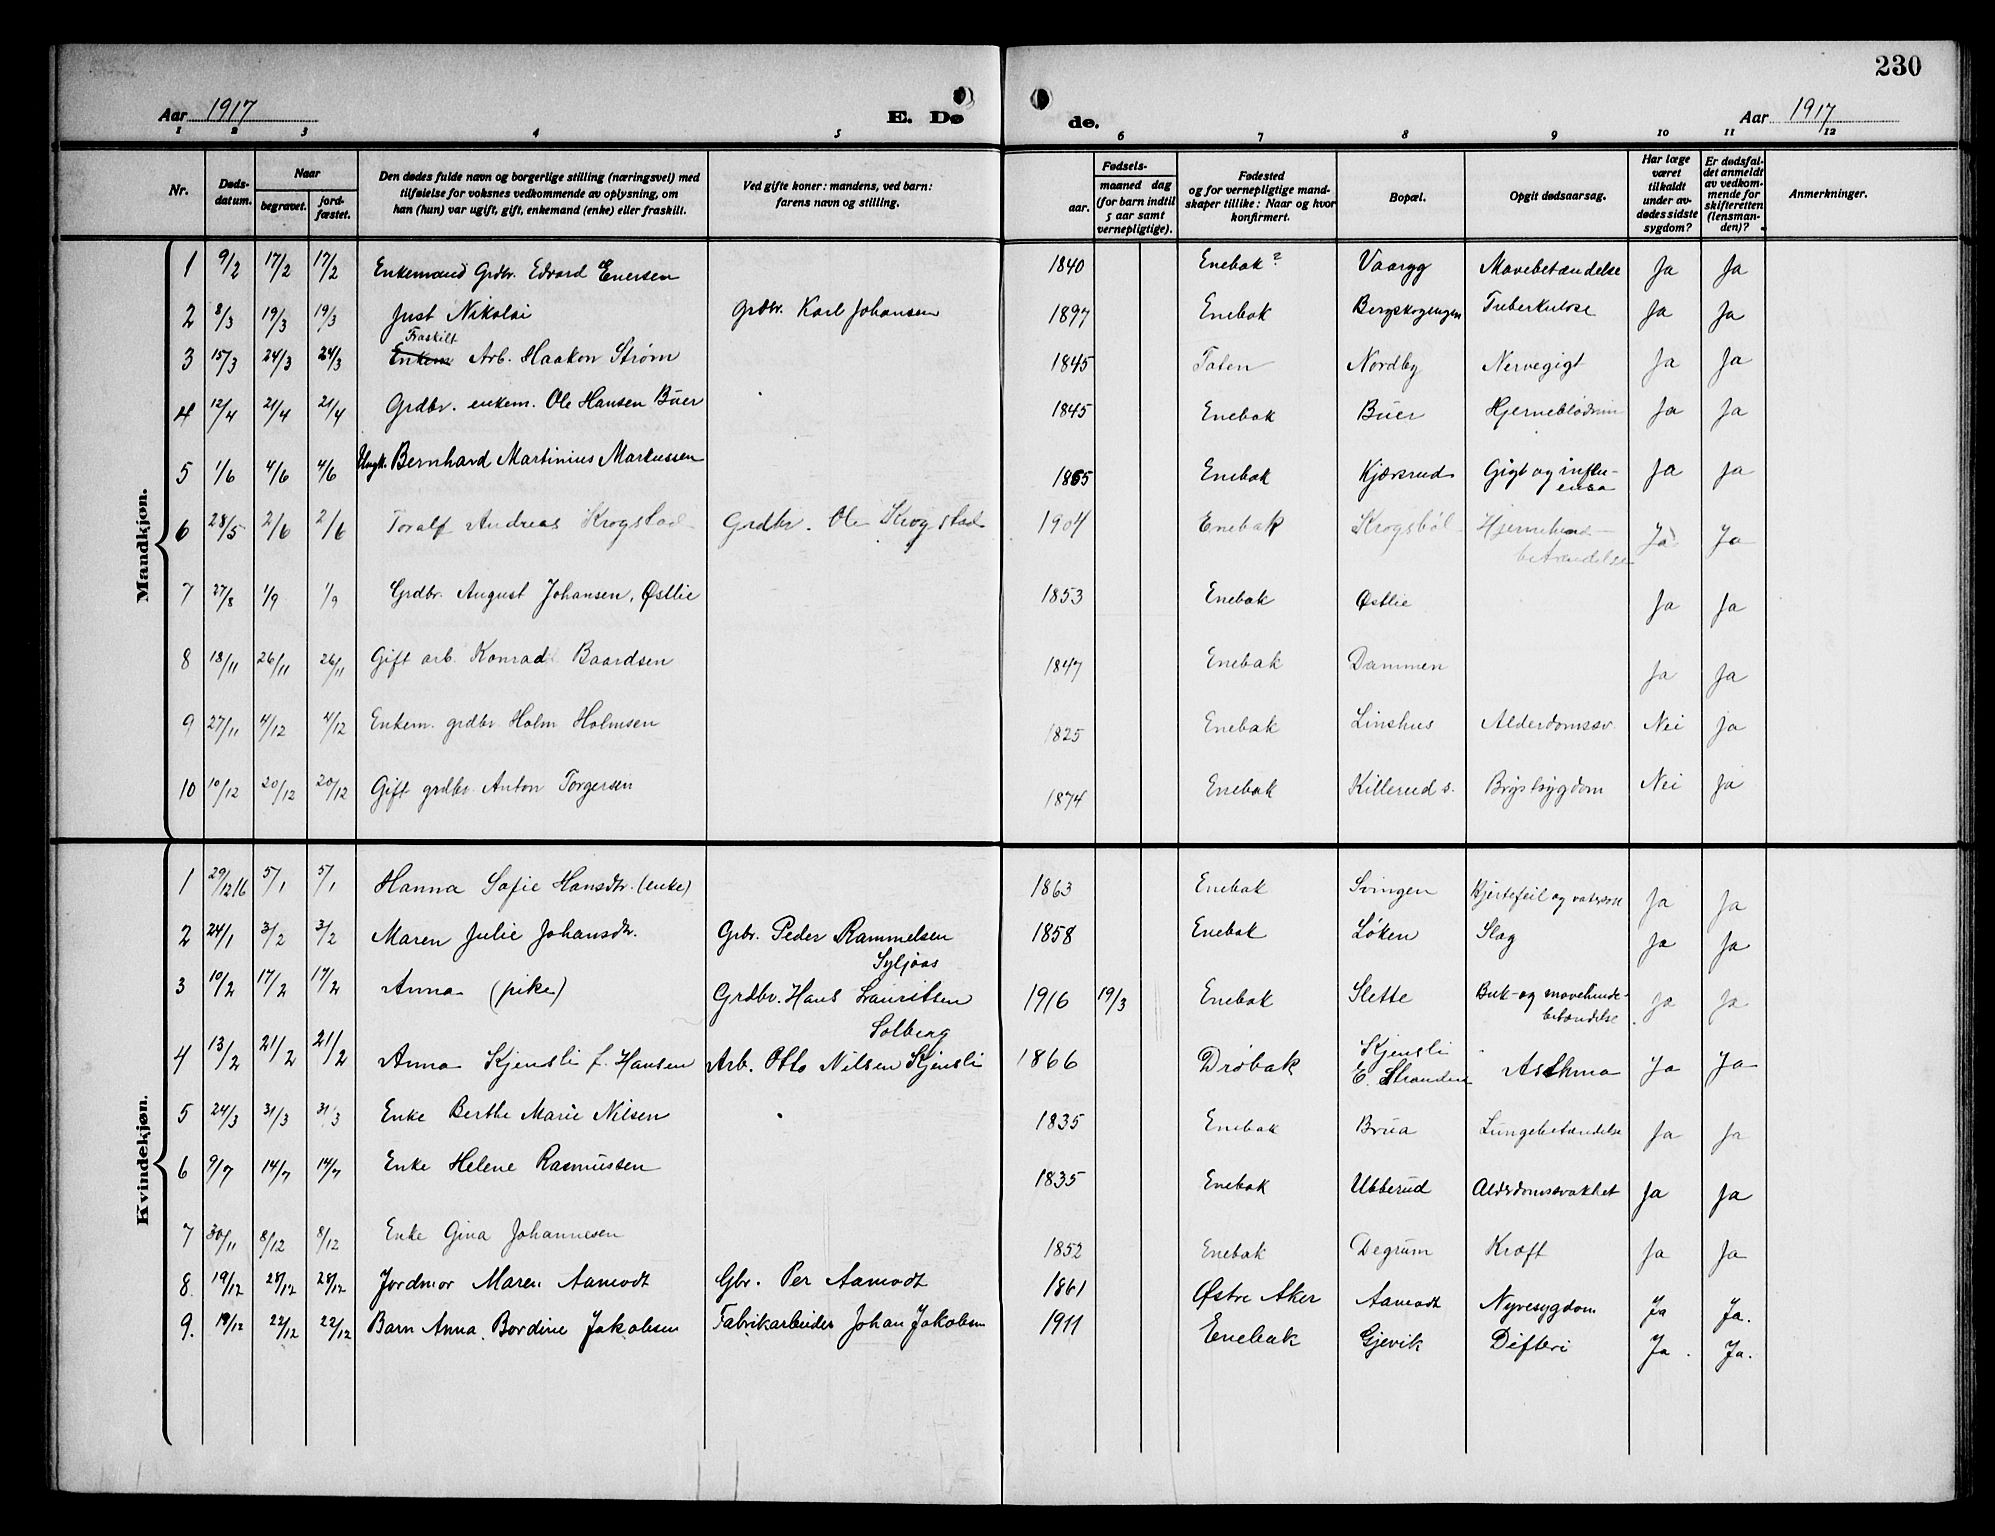 230
Aar 1917 E. Dø de. Aar 1917
1 2 3 4 5 6 7 8 9 10 11 12
Nr. Døds-datum. Naar begravet. jord-fæstet. Den dødes fulde navn og borgerlige stilling (næringsvei) med tilføielse for voksnes vedkommende av oplysning, om han (hun) var ugift, gift, enkemand (enke) eller fraskilt. Ved gifte koner: mandens, ved barn: farens navn og stilling. Fødsels- aar. maaned dag (for barn indtil 5 aar samt vernepligtige). Fødested og for vernepligtige mand-skaper tillike: Naar og hvor konfirmert. Bopæl. Opgit dødsaarsag. Har læge været tilkaldt under av-dødes sidste sygdom? Er dødsfal-det anmeldt av vedkom-mende for skifteretten (lensman-den)? Anmerkninger.
Mandkjøn.
1 9/2 17/2 17/2 Enkemand Grdbr. Edvard Enersen 1840 Enebak? Vaaryg Mavebetændelse Ja Ja
2 8/3 19/3 19/3 Just Nikolai Grdbr. Karl Johansen 1897 Enebak Bergskogengen Tuberkulose Ja Ja
Fraskilt
3 15/3 24/3 24/3 Enkem Arb. Haakon Strøm 1845 Toten Nordby Nervegigt Ja Ja
4 12/4 21/4 21/4 Grdbr. enkem. Ole Hansen Buer 1845 Enebak Buer Hjerneblødnin Ja Ja
5 1/6 4/6 4/6 Ungk. Bernhard Martinius Markussen 1865 Enebak Kjærsrud Gigt og influ-
ensa Ja Ja
6 28/5 2/6 2/6 Toralf Andreas Krogstad Grdbr. Ole Krogstad 1904 Enebak Krogsbøl Hjernehind-
betændelse Ja Ja
7 27/8 1/9 1/9 Grdbr. August Johansen, Østlie 1853 Enebak Østlie Ja Ja
8 18/11 26/11 26/11 Gift arb. Konrad Baardsen 1847 Enebak Dammen Ja Ja
9 27/11 4/12 4/12 Enkem. grdbr. Holm Holmsen 1825 Enebak Linshus Alderdomssv. Nei Ja
10 10/12 20/12 20/12 Gift grdbr. Anton Torgersen 1874 Enebak Killerud s. Brystsygdom Nei Ja
Kvindekjøn.
1 29/12 16 5/1 5/1 Hanna Sofie Hansdtr. (enke) 1863 Enebak Svingen Hjertefeil og vatersot Ja Ja
2 24/1 3/2 3/2 Maren Julie Johansdtr. Grbr. Peder Rammelsen
Syljaas 1858 Enebak Løken Slag Ja Ja
3 10/2 17/2 17/2 Anna (pike) Grdbr. Hans Lauritsen
Solberg 1916 19/3 Enebak Slette Buk- og mavehinde-
betændelse Ja Ja
4 13/2 21/2 21/2 Anna Kjensli f. Hansen Arb. Otto Nilsen Kjensli 1866 Drøbak Kjensli
E. Stranden Asthma Ja Ja
5 24/3 31/3 31/3 Enke Berthe Marie Nilsen 1835 Enebak Brua Lungebetændelse Ja Ja
6 9/7 14/7 14/7 Enke Helene Rasmussen 1835 Enebak Ubberud Alderdomssvakhet Ja Ja
7 30/11 8/12 8/12 Enke Gina Johannesen 1852 Enebak Degrum Kræft Ja Ja
8. 19/12 28/12 28/12 Jordmor Maren Aamodt Gbr. Per Aamodt 1861 Østre Aker Aamodt Nyresygdom Ja Ja.
9. 19/12 22/12 22/12 Barn Anna Bordine Jakobsen Fabrikarbeider Johan Jakobsen 1911 Enebak Gjevik Difteri Ja. Ja.